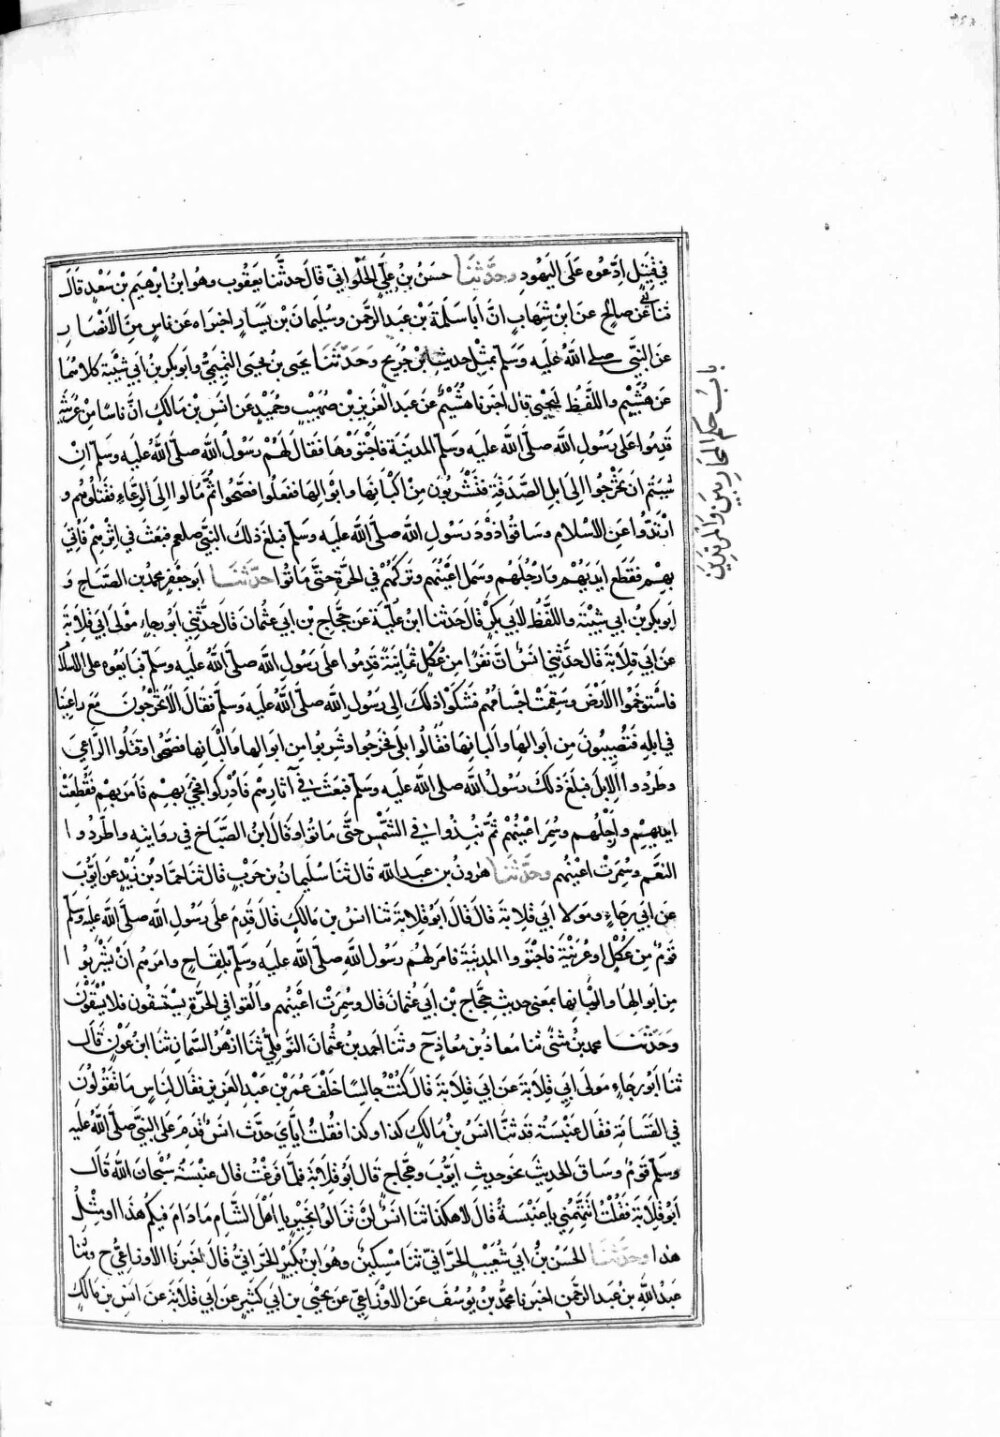 في قتيل ادعوه على اليهود وحدثنا حسن بن علي الحلواني قال حدثنا يعقوب وهو ابن ابرهيم بن سعد قال
ثنا ابي عن صالح عن ابن شهاب ان أبا سلمة بن عبد الرحمن وسليمان بن يسار اخبراه عن ناس من الانصار
عن النبي صلى الله عليه وسلم بمثل حديث ابن جريج وحدثنا يحيى بن يحيى التميمي وابو بكر بن ابي شيبة كلاهما
عن هشيم واللفظ ليحيى قال اخبرنا هشيم عن عبد العزيز بن صهيب وحميد عن انس بن مالك ان ناسا من عرينة
قدموا على رسول الله صلى الله عليه وسلم المدينة فاجتووها فقال لهم رسول الله صلى الله عليه وسلم ان
شئتم ان تخرجوا الى ابل الصدقة فتشربون من البانها وابوالها ففعلوا فصحوا ثم مالوا الى الرعاء فقتلوهم و
ارتدوا عن الاسلام وساقوا ذود رسول الله صلى الله عليه وسلم فبلغ ذلك النبي صلعم فبعث في اثرهم فاتي
بهم فقطع ايديهم وارجلهم وسمل اعينهم وتركهم في الحرة حتى ماتوا حدثنا ابو جعفر محمد بن الصباح و
ابو بكر بن ابي شيبة واللفظ لابي بكر قال حدثنا ابن علية عن حجاج بن ابي عثمان قال حدثني أبو رجاء مولى ابي قلابة
عن ابي قلابة قال حدثني انس ان نفرا من عكل ثمانية قدموا على رسول الله صلى الله عليه وسلم فبايعوه على الاسلام
فاستوخموا الارض وسقمت اجسامهم فشكوا ذلك الى رسول الله صلى الله عليه وسلم فقال الا تخرجون مع راعينا
في ابله فتصيبون من ابوالها والبانها فقالوا بلى فخرجوا وشربوا من ابوالها والبانها فصحوا وقتلوا الراعي
وطردوا الابل فبلغ ذلك رسول الله صلى الله عليه وسلم فبعث في آثارهم فادركوا فجيء بهم فامر بهم فقطعت
ايديهم وارجلهم وسمر اعينهم ثم نبذوا في الشمس حتى ماتوا وقال ابن الصباح في روايته واطردوا
النعم وسمرت اعينهم وحدثنا هارون بن عبد الله قال ثنا سليمان بن حرب قال ثنا حماد بن زيد عن ايوب
عن ابي رجاء مولا ابي قلابة قال قال ابو قلابة ثنا انس بن مالك قال قدم على رسول الله صلى الله عليه وسلم
قوم من عكل او عرينة فاجتووا المدينة فامر لهم رسول الله صلى الله عليه وسلم بلقاح وامرهم ان يشربوا
من ابوالها والبانها بمعنى حديث حجاج بن ابي عثمان قال وسمرت اعينهم والقوا في الحرة يستسقون فلا يسقون
وحدثنا محمد بن مثنى ثنا معاذ بن معاذ ح وثنا احمد بن عثمان النوفلي ثنا ازهر السمان ثنا ابن عون قال
ثنا ابو رجاء مولى ابي قلابة عن ابي قلابة قال كنت جالسا خلف عمر بن عبد العزيز فقال للناس ما تقولون
في القسامة فقال عنبسة قد ثنا انس بن مالك كذا وكذا فقلت اياي حدث انس قدم على النبي صلى الله عليه
وسلم قوم وساق الحديث نحو حديث ايوب وحجاج قال ابو قلابة فلما فرغت قال عنبسة سبحان الله قال
ابو قلابة فقلت اتتهمني يا عنبسة قال لا هكذا ثنا انس لن تزالوا بخير يا اهل الشام ما دام فيكم هذا او مثل
هذا وحدثنا الحسن بن ابي شعيب الحراني ثنا مسكين وهو ابن بكير الحراني قال اخبرنا الاوزاعي ح وثنا
عبد الله بن عبد الرحمن اخبرنا محمد بن يوسف عن الاوزاعي عن يحيى بن ابي كثير عن ابي قلابة عن انس بن مالك
باب حكم المحاربين والمرتدين